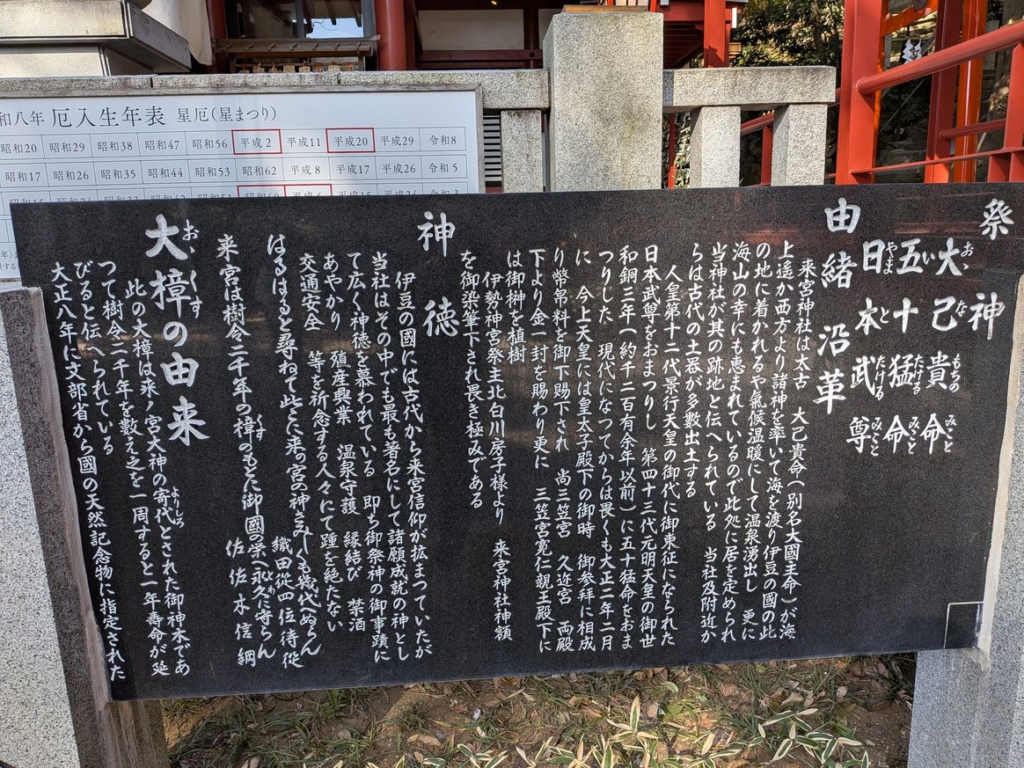 和八年 厄入生年表 星厄(星まつり)
昭和20 昭和29 昭和38 昭和47 昭和56 平成2 平成11 平成20 平成29 令和8
昭和17 昭和26 昭和35 昭和44 昭和53 昭和62 平成8 平成17 平成26 令和5
祭神
大己貴命
おゝなもちのみこと
五十猛命
いたけるのみこと
日本武尊
やまとたけるのみこと
由緒沿革
来宮神社は太古 大己貴命(別名大國主命)が海
上遙か西方より諸神を率いて海を渡り伊豆の國の此
の地に着かれるや気候温暖にして温泉湧出し 更に
海山の幸にも恵まれているので此処に居を定められ
当神社が其の跡地と伝へられている 当社及附近か
らは古代の土器が多数出土する
人皇第十二代景行天皇の御代に御東征になられた
日本武尊をおまつりし 第四十三代元明天皇の御世
和銅三年(約千二百有余年以前)に五十猛命をおま
つりした 現代になつてからは畏くも大正二年二月
に 今上天皇には皇太子殿下の御時 御参拝に相成
り幣帛料を御下賜下され 尚三笠宮 久迩宮 両殿
下より金一封を賜わり更に 三笠宮寛仁親王殿下に
は御榊を植樹
伊勢神宮祭主北白川房子様より 来宮神社神額
を御染筆下され畏き極みである
神徳
伊豆の國には古代から来宮信仰が拡まつていたが
当社はその中でも最も著名にして諸願成就の神とし
て広く神徳を慕われている 即ち御祭神の御事蹟に
あやかり 殖産興業 温泉守護 縁結び 禁酒
交通安全 等を祈念する人々にて踵を絶たない
はるばると尋ねて此に来の宮の神さみしも幾代へぬらん
織田従四位侍従
来宮は樹令二千年の樟のもとに御國の栄へ永久に守らん
佐佐木信綱
大樟の由来
おゝくす
此の大樟は来ノ宮大神の寄代とされた御神木であ
よりしろ
つて樹令二千年を数え之を一周すると一年寿命が延
びると伝へられている
大正八年に文部省から國の天然記念物に指定された